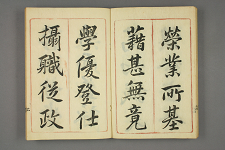 榮業所基
藉甚無竟
學優登仕
攝職從政